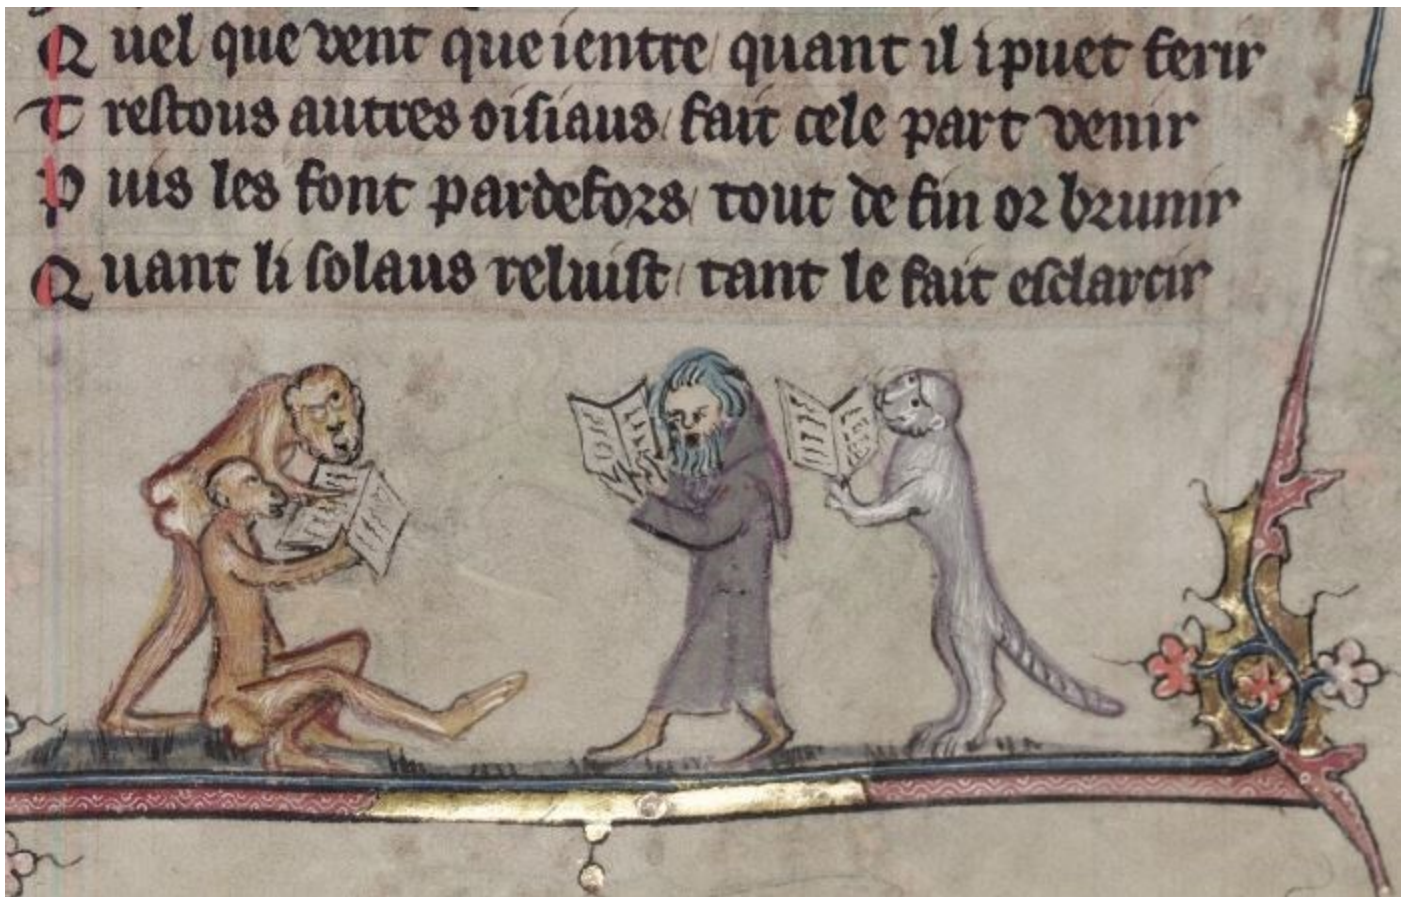 Quel que vent que ientre / quant il i puet ferir
Trestous autres oisiaus / fait cele part venir
Puis les font pardefors / tout de fin or brunir
Quant li solaus reluist / tant le fait esclarcir